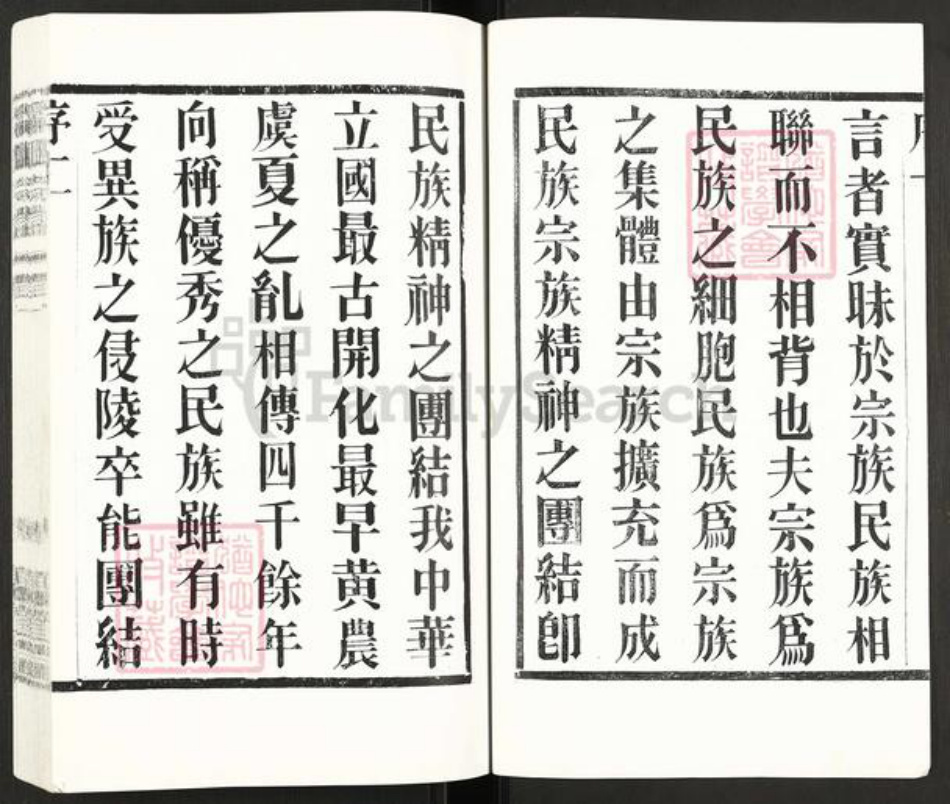 言者實昧於宗族民族相
聯而不相背也夫宗族爲
民族之細胞民族爲宗族
之集體由宗族擴充而成
民族宗族精神之團結卽
民族精神之團結我中華
立國最古開化最早黃農
虞夏之亂相傳四千餘年
向稱優秀之民族雖有時
受異族之侵陵卒能團結
序二
FamilySearch